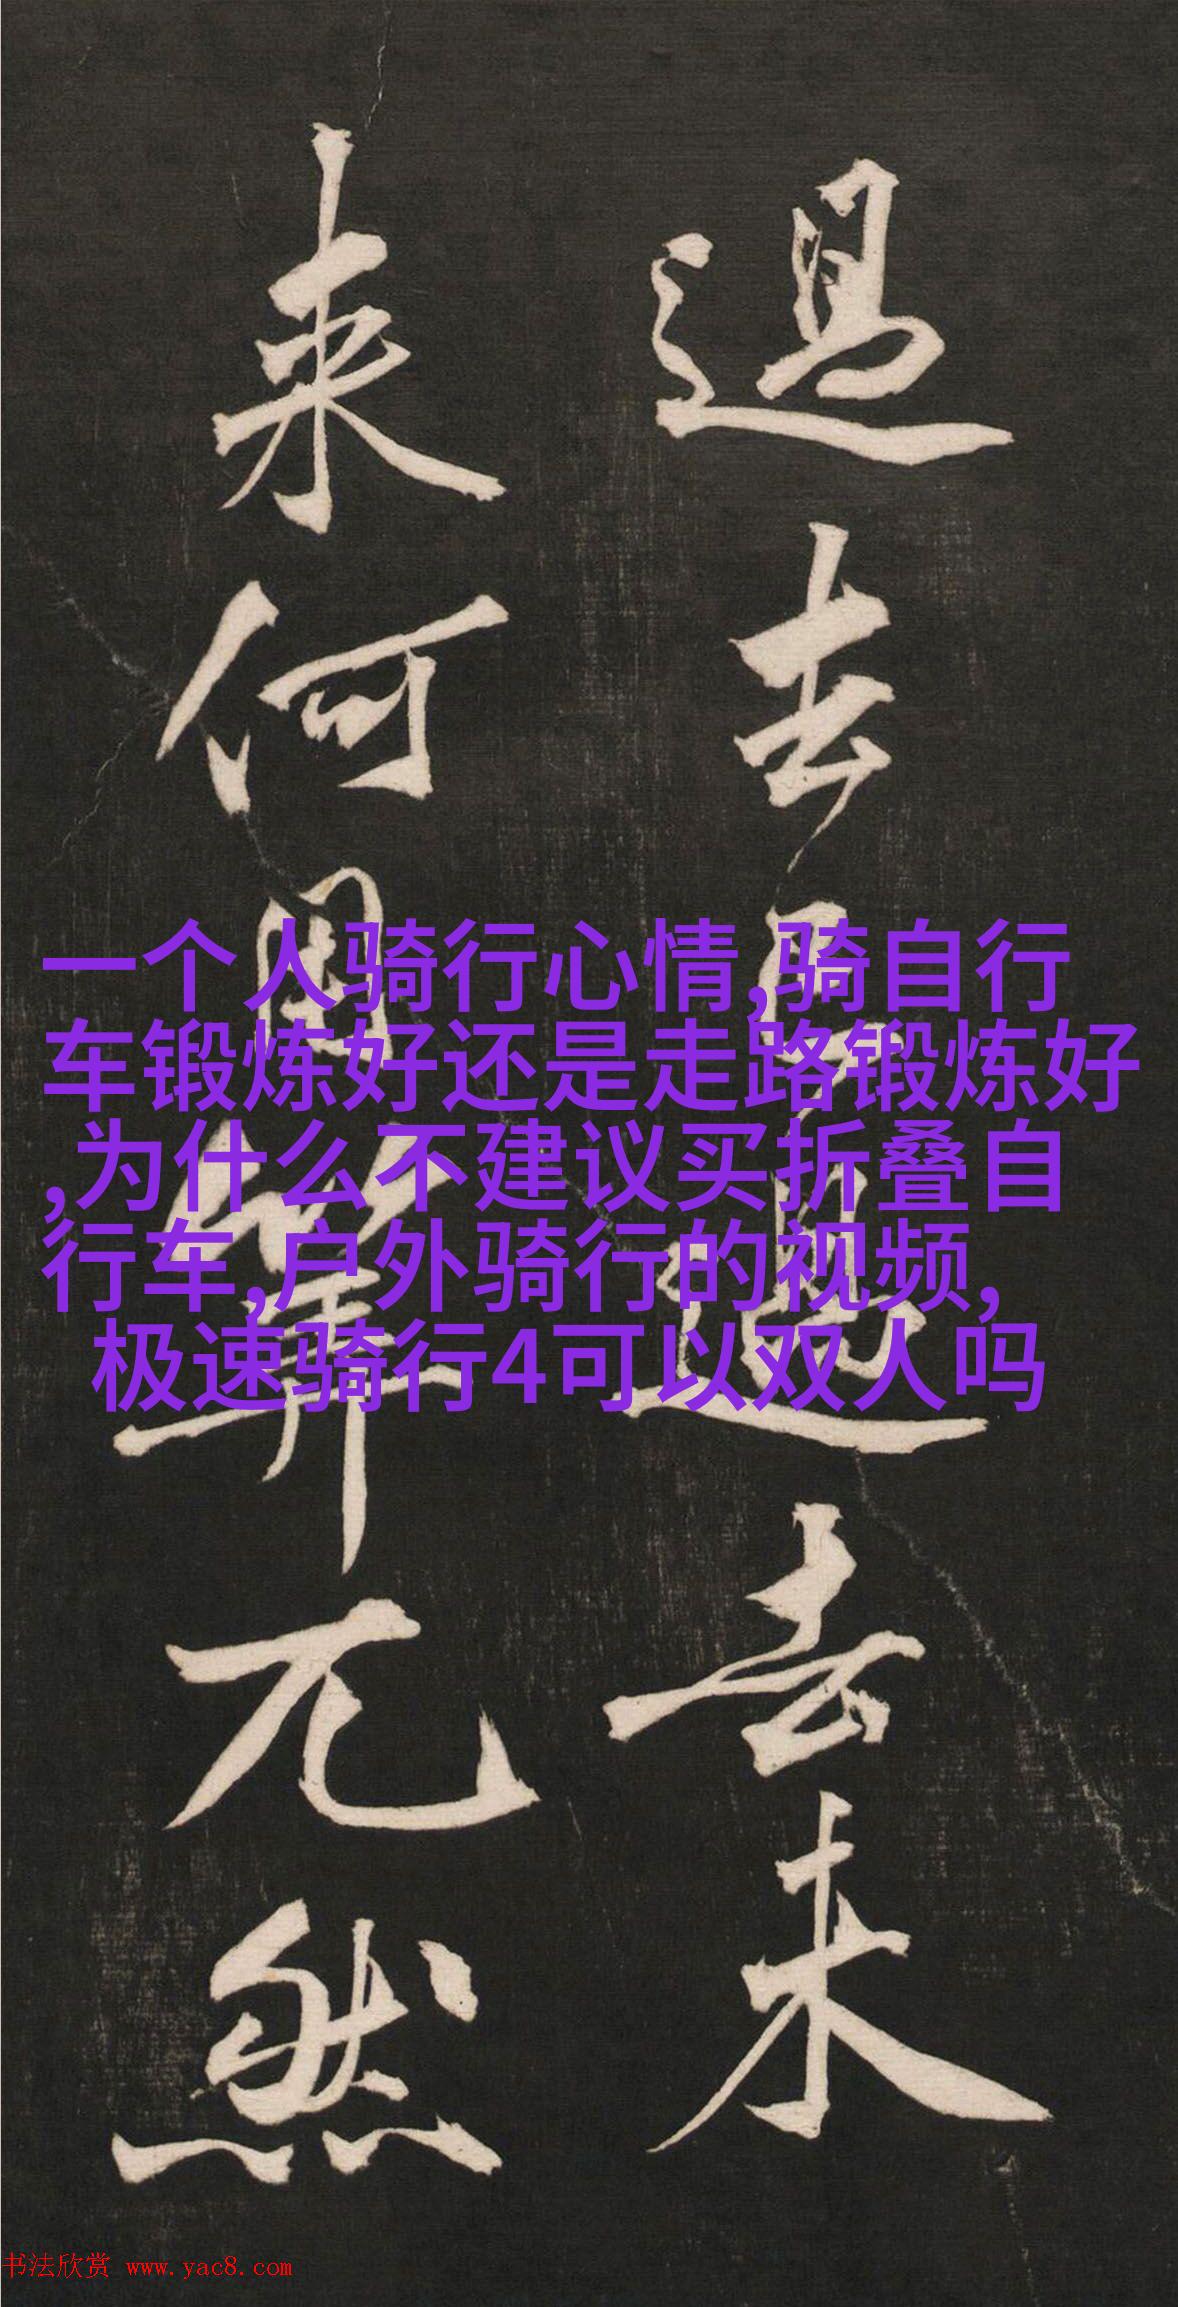 過去已過去未
来何算兀然
一个人骑行心情,骑自行
车锻炼好还是走路锻炼好
,为什么不建议买折叠自
行车,户外骑行的视频,
极速骑行4可以双人吗
书法欣赏 www.yac8.com